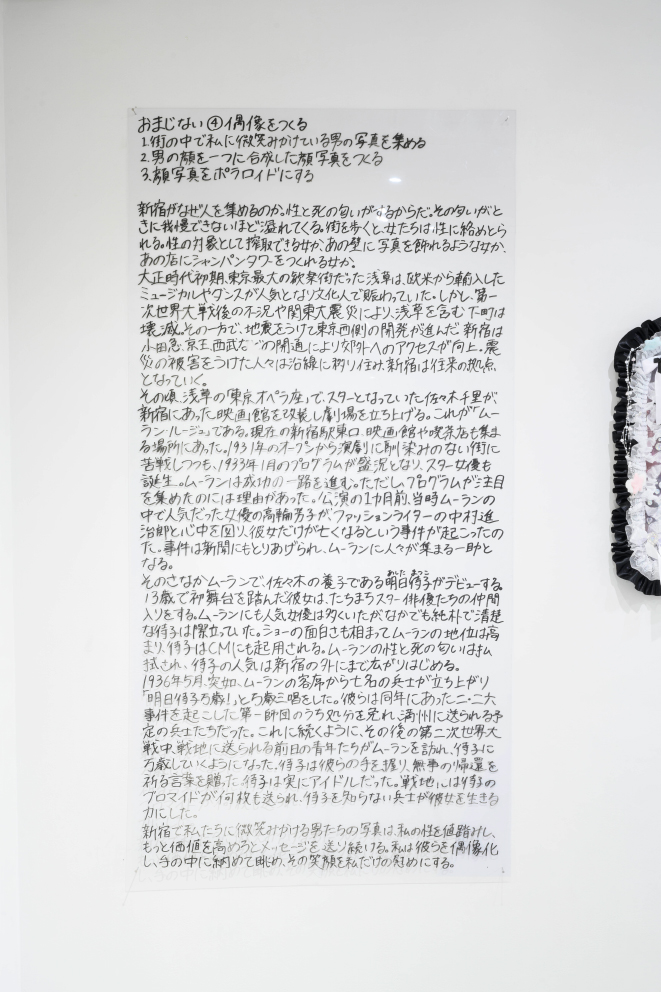 おまじない④偶像をつくる
1.街の中で私に微笑みかけている男の写真を集める
2.男の顔を一つに合成した顔写真をつくる
3.顔写真をポラロイドにする
新宿がなぜ人を集めるのか。性と死の匂いがするからだ。その匂いがと
きに我慢できないほど溢れてくる。街を歩くと、女たちは性に絡めとら
れる。性の対象として搾取できる女か、あの壁に写真を飾れるような女か、
あの店にシャンパンタワーをつくれる女か。
大正時代初期、東京最大の歓楽街だった浅草は、欧米から輸入した
ミュージカルやダンスが人気となり文化人で賑わっていた。しかし、第一
次世界大戦後の不況や関東大震災により、浅草を含む下町は
壊滅。その一方で、地震をうけて東京西側の開発が進んだ。新宿は
小田急、京王、西武などの開通により郊外へのアクセスが向上。震
災の被害をうけた人々は沿線に移り住み、新宿は往来の拠点
となっていく。
その頃、浅草の「東京オペラ座」で、スターとなっていた佐々木千里が、
新宿にあった映画館を改装し劇場を立ち上げる。これが「ムー
ラン・ルージュ」である。現在の新宿駅東口、映画館や喫茶店も集ま
る場所にあった。1931年のオープンから演劇に馴染みのない街に
苦戦しつつも、1933年1月のプログラムが盛況となり、スター女優も
誕生。ムーランは成功の一路を進む。ただし、プログラムが注目
を集めたのには理由があった。公演の1カ月前、当時ムーランの
中で人気だった女優の高輪芳子が、ファッションライターの中村進
治郎と心中を図り、彼女だけが亡くなるという事件が起こったの
だ。事件は新聞にもとりあげられ、ムーランに人々が集まる一助と
なる。
そのさなかムーランで、佐々木の養子である明日待子がデビューする。
13歳で初舞台を踏んだ彼女は、たちまちスター俳優たちの仲間
入りをする。ムーランにも人気女優は多くいたが、なかでも純朴で清楚
な待子は際立っていた。ショーの面白さも相まってムーランの地位は高
まり、待子はCMにも起用される。ムーランの性と死の匂いは払
拭され、待子の人気は新宿の外にまで広がりはじめる。
1936年5月、突如、ムーランの客席から七名の兵士が立ち上がり
「明日待子万歳!」と万歳三唱をした。彼らは同年にあった二・二六
事件を起こした第一師団のうち処分を免れ、満州に送られる予
定の兵士たちだった。これに続くように、その後の第二次世界大
戦中、戦地に送られる前日の青年たちがムーランを訪れ、待子に
万歳していくようになった。待子は彼らの手を握り、無事の帰還を
祈る言葉を贈った。待子は実にアイドルだった。戦地には待子の
ブロマイドが何枚も送られ、待子を知らない兵士が彼女を生きる
力にした。
新宿で私たちに微笑みかける男たちの写真は、私の性を値踏みし、
もっと価値を高めろとメッセージを送り続ける。私は彼らを偶像化
し、手の中に納めて眺め、その笑顔を私だけの慰めにする。